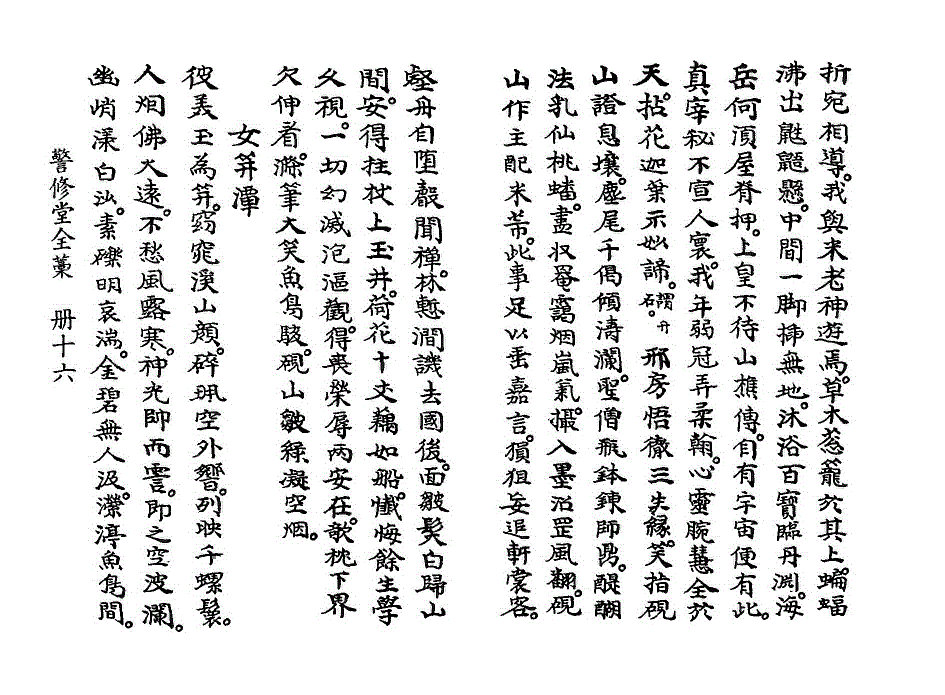 折宛相導。我與米老神遊焉。草木葱籠於其上。蝙蝠
沸出鼪鼯懸。中間一脚插無地。沐浴百寶臨丹淵。海
岳何須屋脊押。上皇不待山樵傳。自有宇宙便有此。
真宰秘不宣人寰。我年弱冠弄柔翰。心靈腕慧全於
天。拈花迦葉示妙諦。謂升石。邢房悟徹三生緣。笑指硯
山證息壤。麈尾千偈傾濤瀾。聖僧瓶鉢鍊師鼎。醍醐
法乳仙桃蟠。畫収罨靄烟嵐氣。攝入墨沼罡風翻。硯
山作主配米芾。此事足以垂嘉言。猥狙妄追軒裳客。
壑舟自堕聲聞禅。林慙澗譏去國後。面皺髮白歸山
間。安得拄杖上玉井。荷花十丈藕如船。懺悔餘生學
久視。一切幻滅泡漚觀。得喪榮辱兩安在。欹枕下界
欠伸看。滌筆大笑魚鳥駭。硯山皺綠凝空烟。
女笄潭
彼美玉為笄。窈窕溪山顏。碎珮空外響。列映千螺鬟。
人烟佛大遠。不愁風露寒。神光即而霅。即之空波瀾。
幽峭漾白泓。素礫明哀湍。金碧無人汲。瀠渟魚鳥間。
警修堂全藁　册十六